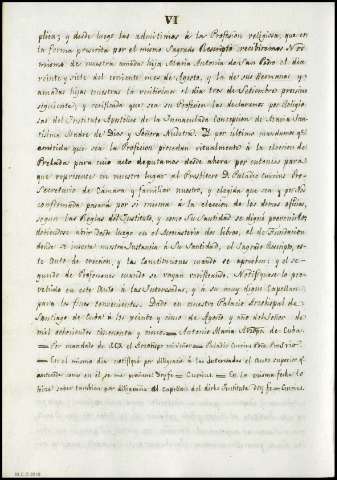 VI
plica; y desde luego las admitimos á la Profesion religiosa, que en
la forma prescrita por el mismo Sagrado Rescripto recibiremos Nos
mismo de nuestra amada hija Maria Antonia de San Pedro el dia
veinte y siete del corriente mes de Agosto, y la de sus Hermanas y
amadas hijas nuestras la recibiremos el dia tres de Setiembre proximo
siguiente; y verificada que sea su Profesion las declaramos por Religio-
sas del Instituto Apostolico de la Inmaculada Concepcion de Maria San-
tisima Madre de Dios y Señora Nuestra. Y por ultimo mandamos que
emitida que sea la Profesion procedan ritualmente á la eleccion de
Prelada para cuio acto deputamos desde ahora por entonces para
que represente en nuestro lugar al Presbitero D. Paladio Currius Pro-
Secretario de Cámara y familiar nuestro, y elegida que sea y por Nos
confirmada pasará por si misma á la eleccion de los demas oficios,
segun las Reglas del Instituto, y como Su Santidad se dignó prevenirlo;
debiendose abrir desde luego en el Monasterio dos libros, el de Fundacion
donde se inserte nuestra Instancia á Su Santidad, el Sagrado Rescripto, es-
te Auto de ereccion, y las Constituciones cuando se aprueben; y el se-
gundo de Profesiones cuando se vayan verificando. Notifiquese lo pro-
veido en este Auto á las Interesadas, y á su muy digno Capellan
para los fines convenientes. Dado en nuestro Palacio Arzobispal de
Santiago de Cuba á los veinte y cinco de Agosto y año del Señor de
mil ochocientos cincuenta y cinco. = Antonio Maria Arzbpo de Cuba.
= Por mandato de SEI el Arzobispo mi Señor = Paladio Currius Pbro Pro Srio.
= En el mismo dia notifiqué por diligencia á las Interesadas el auto superior q.
antecede como en el se me previene Doy fe = Currius. = En la misma fecha lo
hice saber tambien por diligencia al capellan del dicho Instituto Doy fe = Currius.